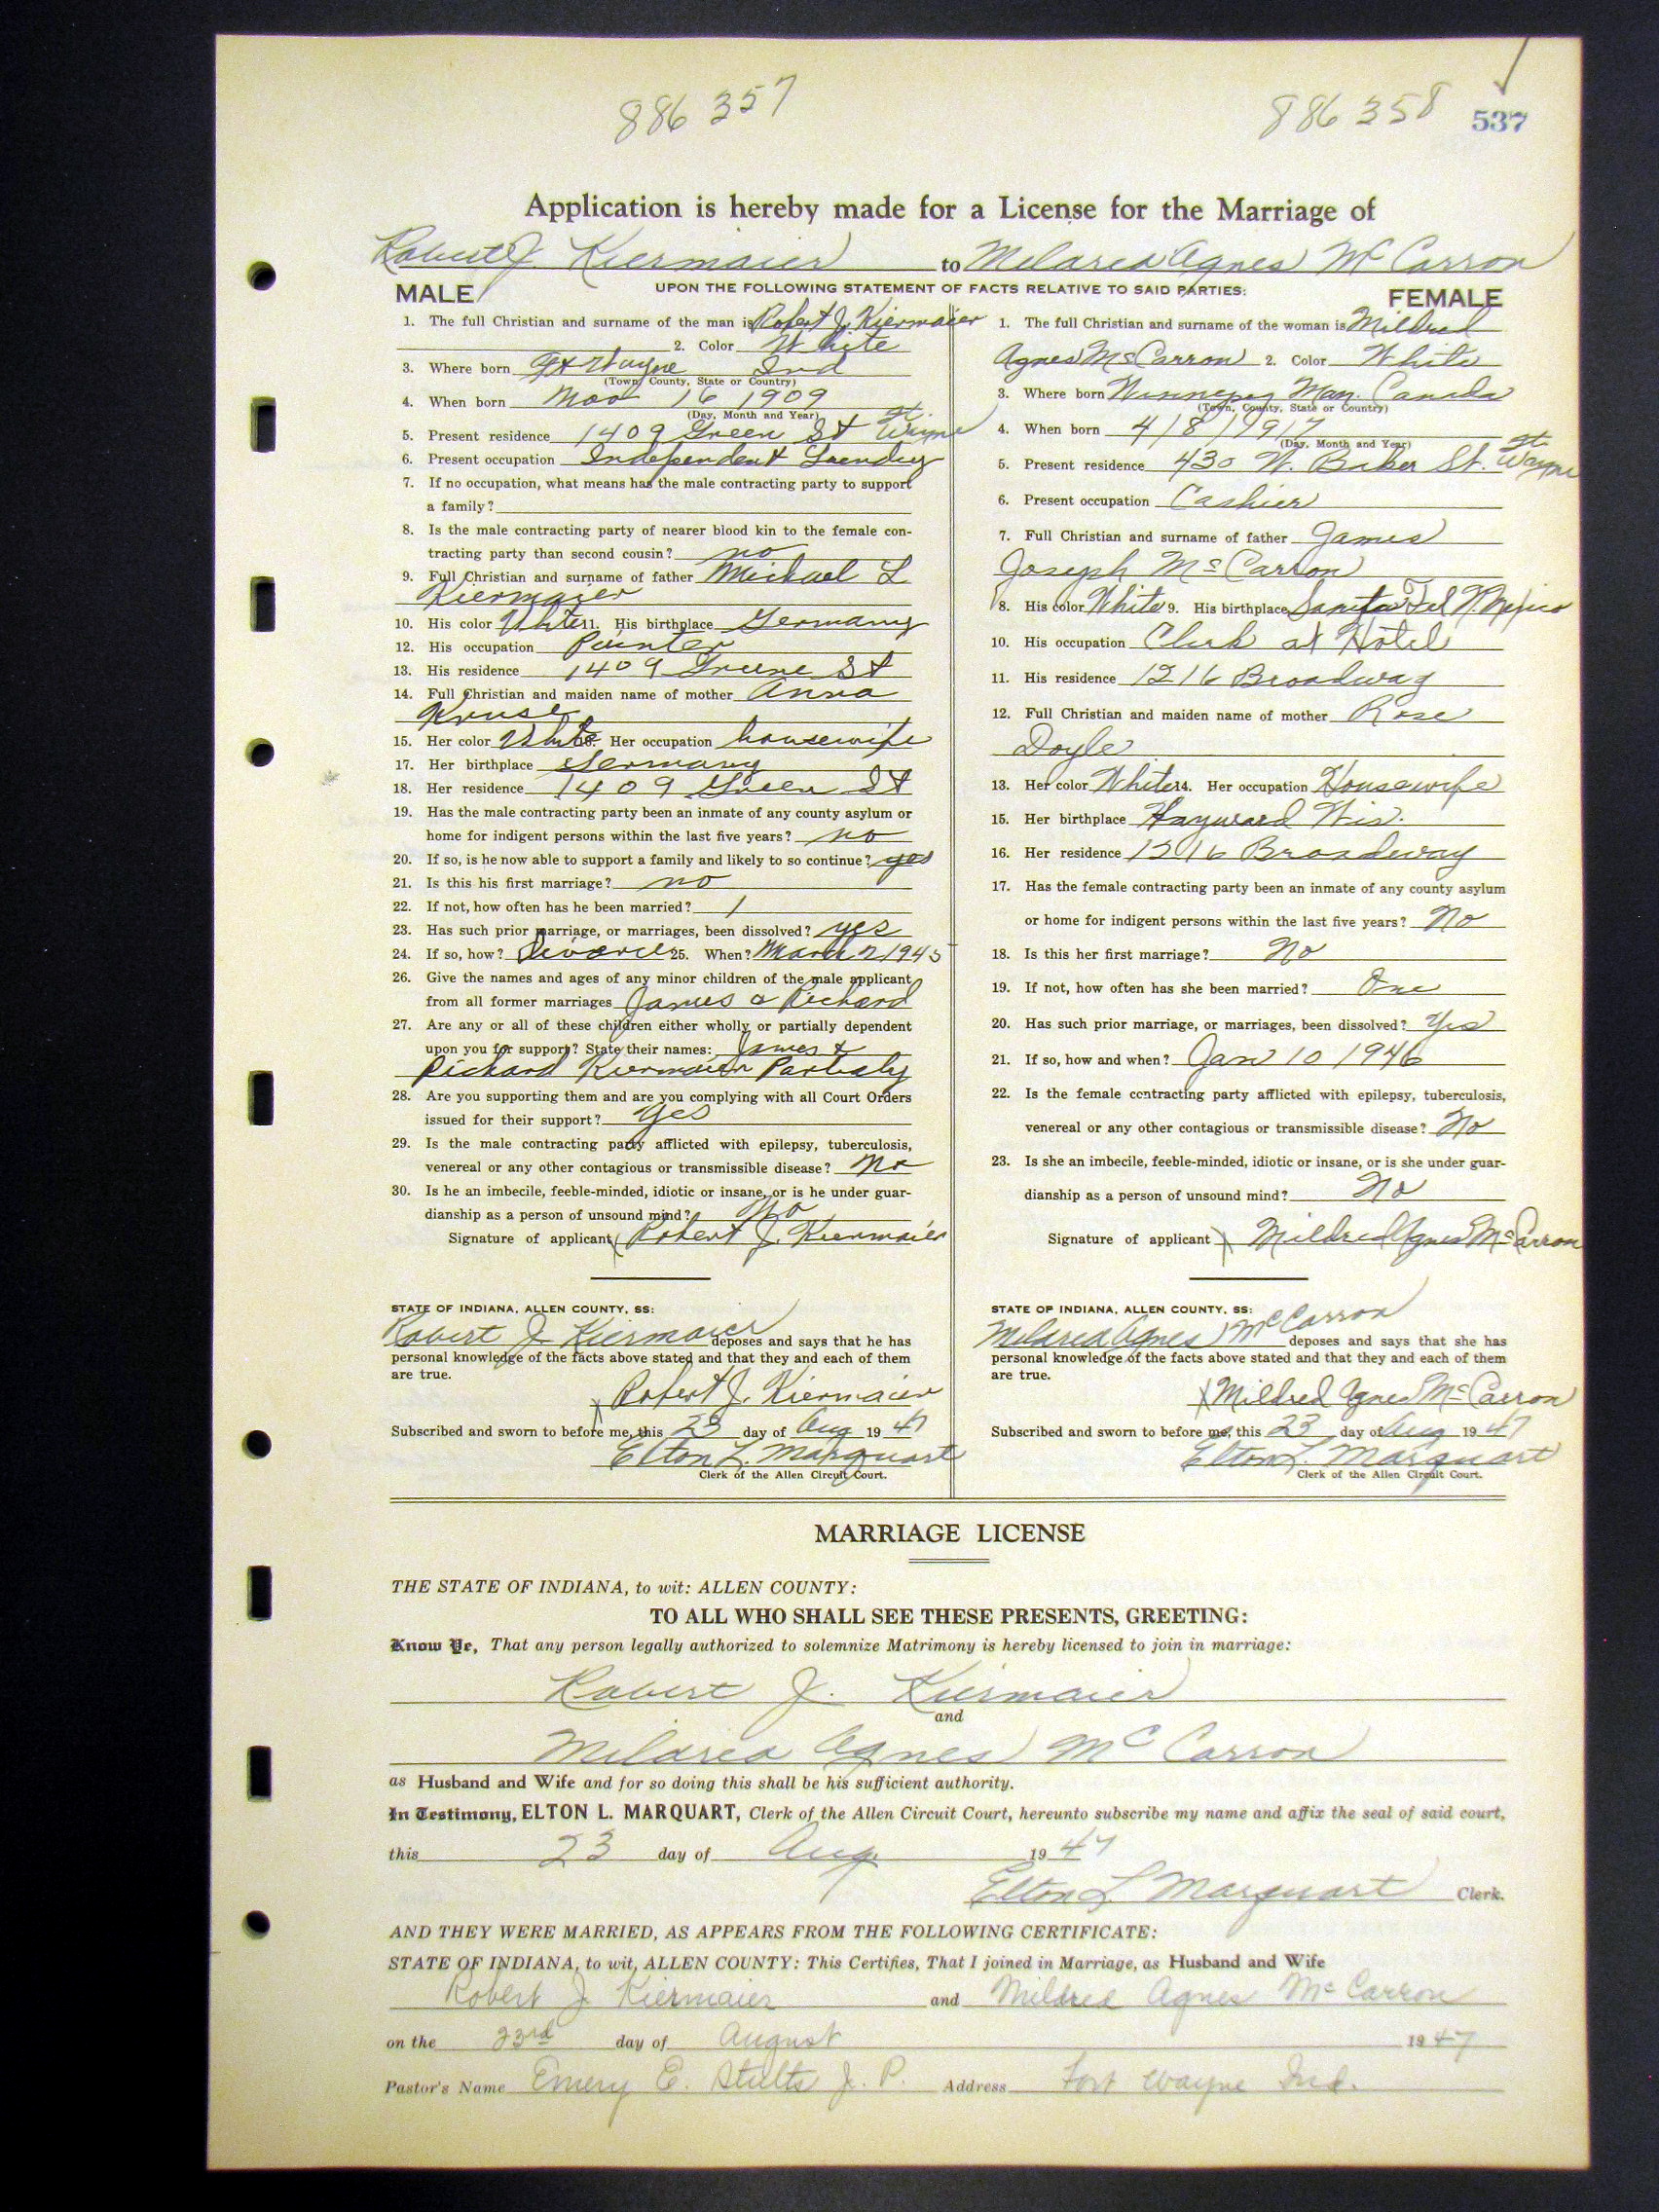 886 357
886 358
537
Application is hereby made for a License for the Marriage of
Robert J. Kiermaier to Mildred Agnes McCarron
UPON THE FOLLOWING STATEMENT OF FACTS RELATIVE TO SAID PARTIES:
MALE
1. The full Christian and surname of the man is Robert J. Kiermaier
2. Color White
3. Where born Ft Wayne Ind
(Town, County, State or Country)
4. When born Nov 16 1909
(Day, Month and Year)
5. Present residence 1409 Green St Ft. Wayne
6. Present occupation Independent Laundry
7. If no occupation, what means has the male contracting party to support
a family?
8. Is the male contracting party of nearer blood kin to the female con-
tracting party than second cousin? no
9. Full Christian and surname of father Michael L
Kiermaier
10. His color White 11. His birthplace Germany
12. His occupation Painter
13. His residence 1409 Greene St
14. Full Christian and maiden name of mother Anna
Kruse
15. Her color White 16. Her occupation housewife
17. Her birthplace Germany
18. Her residence 1409 Green St
19. Has the male contracting party been an inmate of any county asylum or
home for indigent persons within the last five years? no
20. If so, is he now able to support a family and likely to so continue? yes
21. Is this his first marriage? no
22. If not, how often has he been married? 1
23. Has such prior marriage, or marriages, been dissolved? yes
24. If so, how? Divorce 25. When? March 2 1945
26. Give the names and ages of any minor children of the male applicant
from all former marriages James & Richard
27. Are any or all of these children either wholly or partially dependent
upon you for support? State their names: James &
Richard Kiermaier Partialy
28. Are you supporting them and are you complying with all Court Orders
issued for their support? yes
29. Is the male contracting party afflicted with epilepsy, tuberculosis,
venereal or any other contagious or transmissible disease? No
30. Is he an imbecile, feeble-minded, idiotic or insane, or is he under guar-
dianship as a person of unsound mind? No
Signature of applicant x Robert J. Kiermaier
STATE OF INDIANA, ALLEN COUNTY, SS:
Robert J Kiermaier deposes and says that he has
personal knowledge of the facts above stated and that they and each of them
are true.
x Robert J. Kiermaier
Subscribed and sworn to before me, this 23 day of Aug 19 47
Elton L. Marquart
Clerk of the Allen Circuit Court.
FEMALE
1. The full Christian and surname of the woman is Mildred
Agnes McCarron 2. Color White
3. Where born Winnepeg Man. Canada
(Town, County, State or Country)
4. When born 4/8/1917
(Day, Month and Year)
5. Present residence 430 W. Baker St. Ft. Wayne
6. Present occupation Cashier
7. Full Christian and surname of father James
Joseph McCarron
8. His color White 9. His birthplace N. Mexico
10. His occupation Clerk at Hotel
11. His residence 1216 Broadway
12. Full Christian and maiden name of mother Rose
Doyle
13. Her color White 14. Her occupation Housewife
15. Her birthplace Hayward Wis.
16. Her residence 1216 Broadway
17. Has the female contracting party been an inmate of any county asylum
or home for indigent persons within the last five years? No
18. Is this her first marriage? No
19. If not, how often has she been married? One
20. Has such prior marriage, or marriages, been dissolved? Yes
21. If so, how and when? Jan 10 1946
22. Is the female contracting party afflicted with epilepsy, tuberculosis,
venereal or any other contagious or transmissible disease? No
23. Is she an imbecile, feeble-minded, idiotic or insane, or is she under guar-
dianship as a person of unsound mind? No
Signature of applicant x Mildred Agnes McCarron
STATE OF INDIANA, ALLEN COUNTY, SS:
Mildred Agnes McCarron deposes and says that she has
personal knowledge of the facts above stated and that they and each of them
are true.
x Mildred Agnes McCarron
Subscribed and sworn to before me, this 23 day of Aug 19 47
Elton L. Marquart
Clerk of the Allen Circuit Court.
MARRIAGE LICENSE
THE STATE OF INDIANA, to wit: ALLEN COUNTY:
TO ALL WHO SHALL SEE THESE PRESENTS, GREETING:
Know Ye, That any person legally authorized to solemnize Matrimony is hereby licensed to join in marriage:
Robert J. Kiermaier
and
Mildred Agnes McCarron
as Husband and Wife and for so doing this shall be his sufficient authority.
In Testimony, ELTON L. MARQUART, Clerk of the Allen Circuit Court, hereunto subscribe my name and affix the seal of said court,
this 23 day of Aug. 19 47
Elton L Marquart Clerk.
AND THEY WERE MARRIED, AS APPEARS FROM THE FOLLOWING CERTIFICATE:
STATE OF INDIANA, to wit, ALLEN COUNTY: This Certifies, That I joined in Marriage, as Husband and Wife
Robert J. Kiermaier and Mildred Agnes McCarron
on the 23rd day of August 19 47
Pastor's Name Emery E. Stults J. P. Address Fort Wayne Ind.